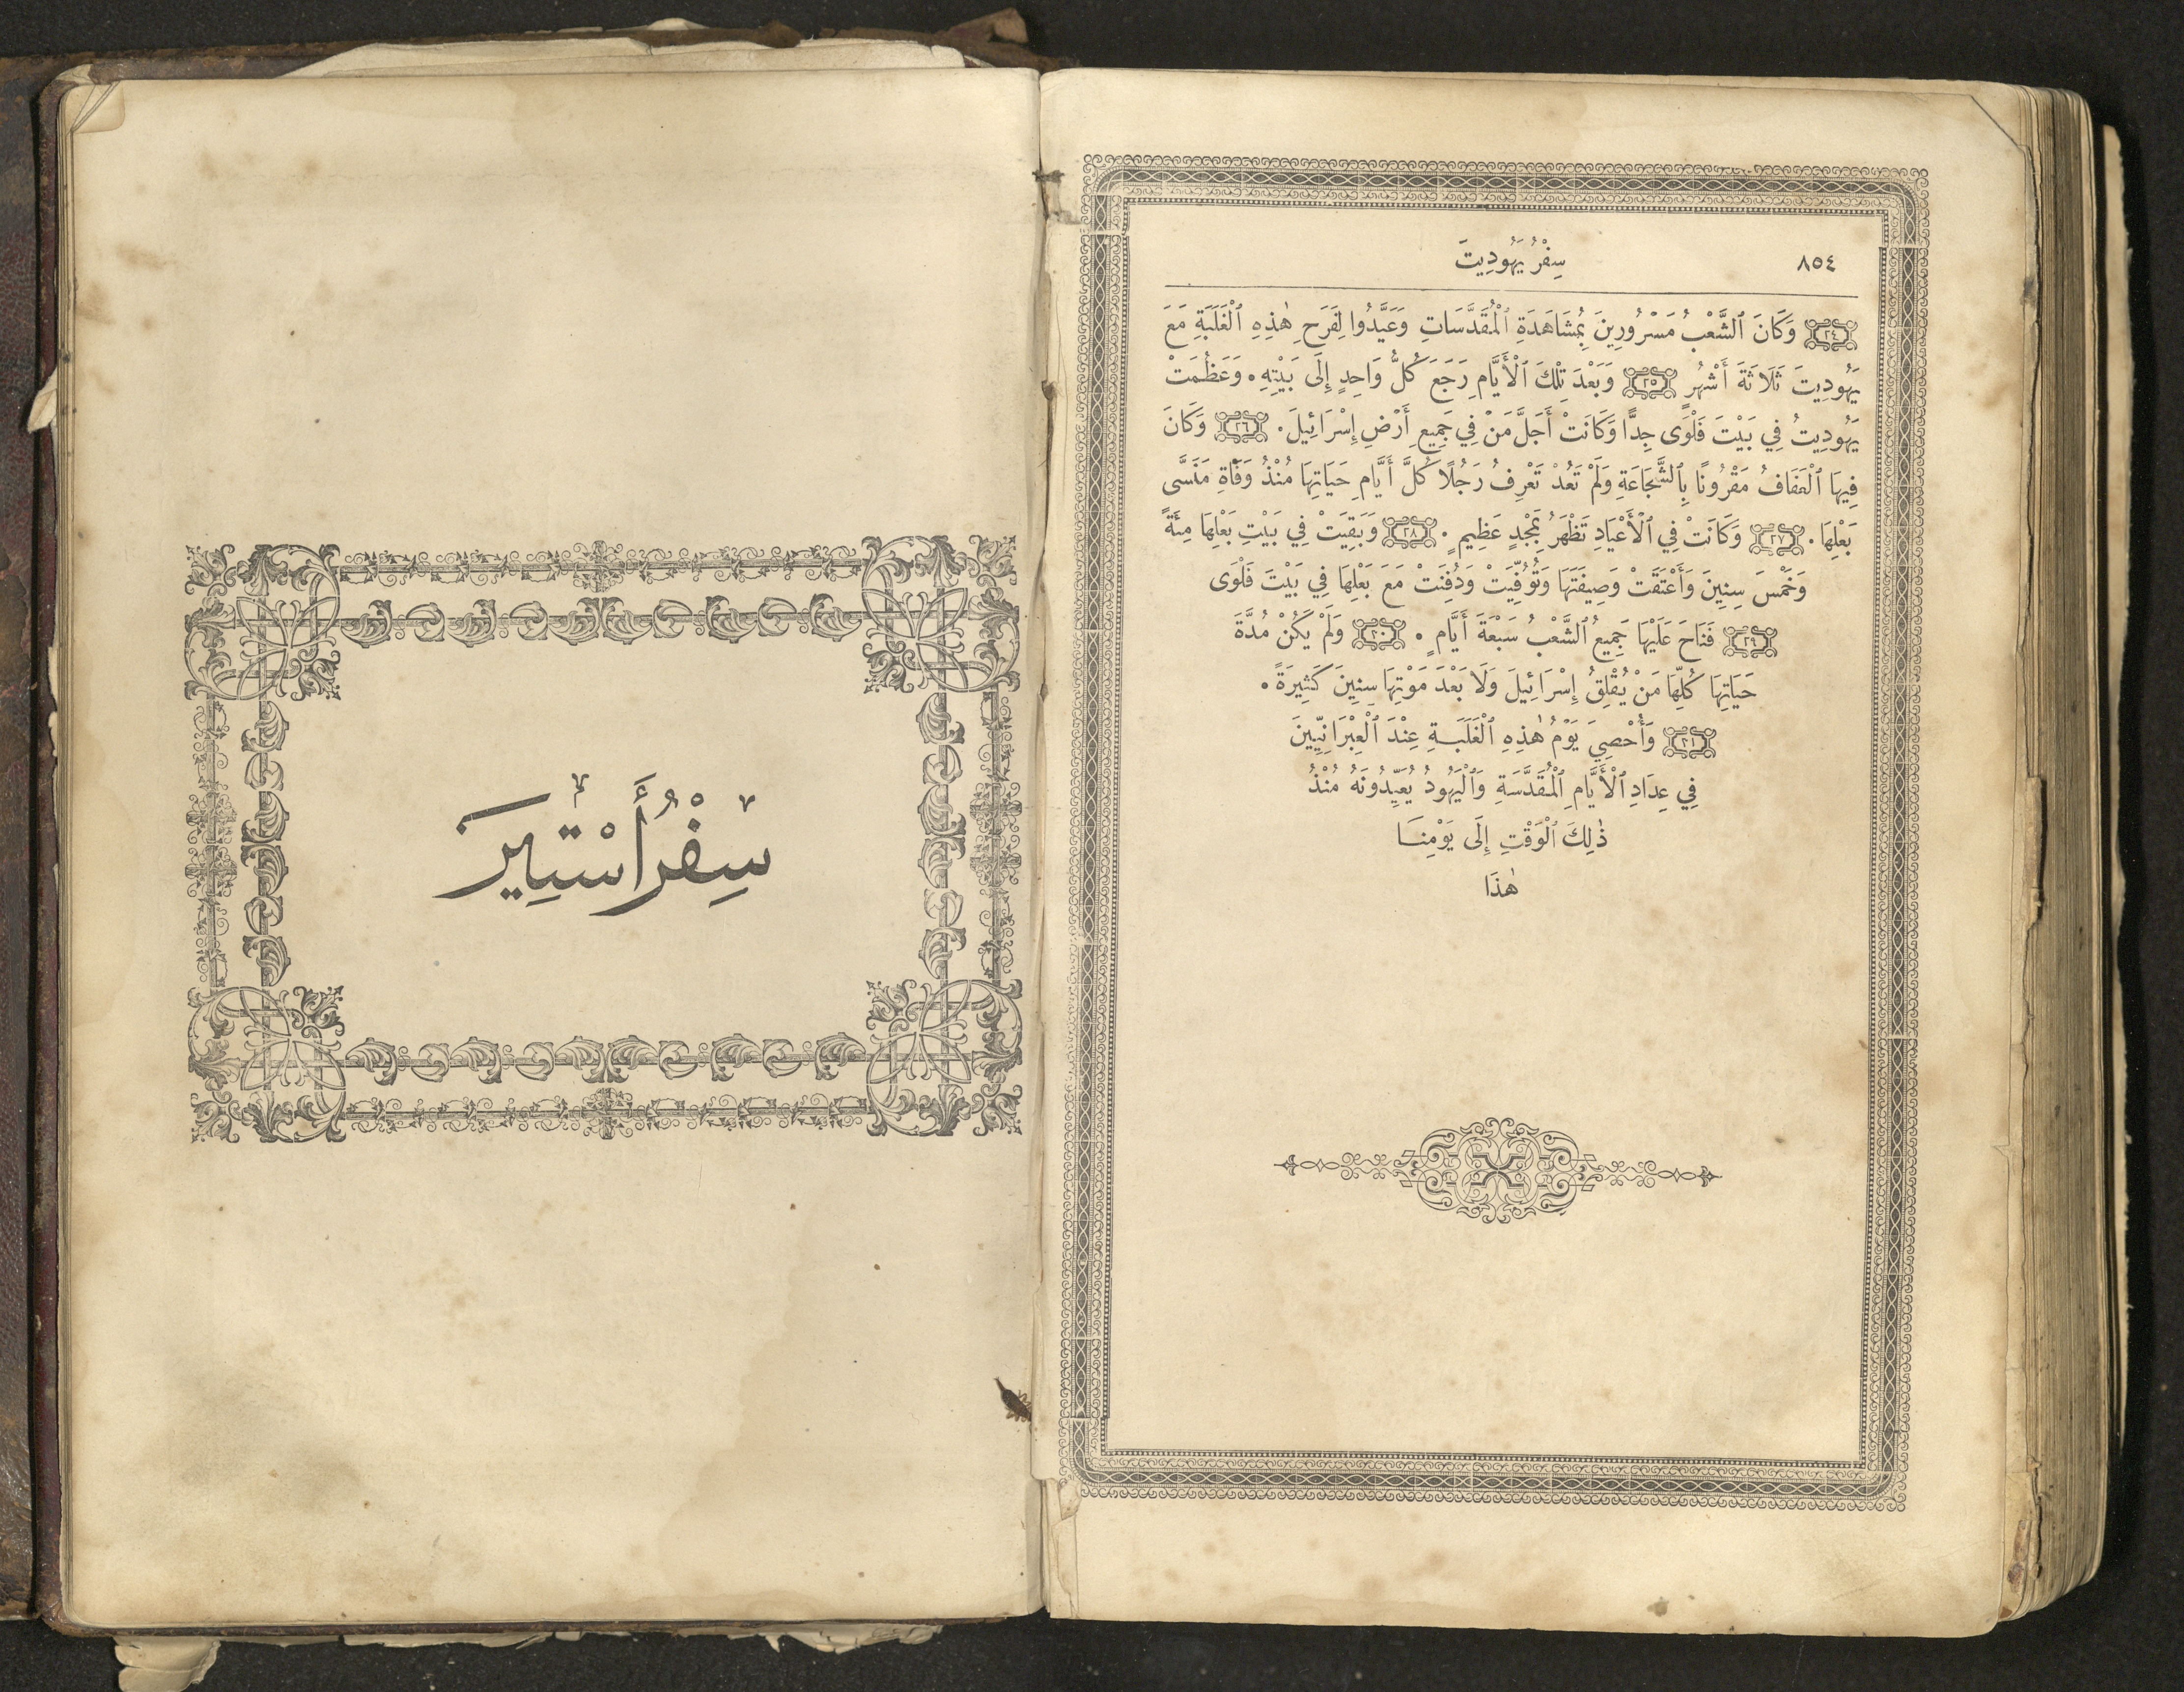 ٨٥٤ سِفْرُ يَهُودِيتَ
٢٤ وَكَانَ ٱلشَّعْبُ مَسْرُورِينَ بِمُشَاهَدَةِ ٱلْمُقَدَّسَاتِ وَعَيَّدُوا لِفَرَحِ هٰذِهِ ٱلْغَلَبَةِ مَعَ
يَهُودِيتَ ثَلَاثَةَ أَشْهُرٍ ٢٥ وَبَعْدَ تِلْكَ ٱلْأَيَّامِ رَجَعَ كُلُّ وَاحِدٍ إِلَى بَيْتِهِ. وَعَظُمَتْ
يَهُودِيتُ فِي بَيْتَ فَلْوَى جِدًّا وَكَانَتْ أَجَلَّ مَنْ فِي جَمِيعِ أَرْضِ إِسْرَائِيلَ. ٢٦ وَكَانَ
فِيهَا ٱلْعَفَافُ مَقْرُونًا بِٱلشَّجَاعَةِ وَلَمْ تَعُدْ تَعْرِفُ رَجُلًا كُلَّ أَيَّامِ حَيَاتِهَا مُنْذُ وَفَاةِ مَنَسَّى
بَعْلِهَا. ٢٧ وَكَانَتْ فِي ٱلْأَعْيَادِ تَظْهَرُ بِمَجْدٍ عَظِيمٍ. ٢٨ وَبَقِيَتْ فِي بَيْتِ بَعْلِهَا مِئَةً
وَخَمْسَ سِنِينَ وَأَعْتَقَتْ وَصِيفَتَهَا وَتُوُفِّيَتْ وَدُفِنَتْ مَعَ بَعْلِهَا فِي بَيْتَ فَلْوَى
٢٩ فَنَاحَ عَلَيْهَا جَمِيعُ ٱلشَّعْبُ سَبْعَةَ أَيَّامٍ. ٣٠ وَلَمْ يَكُنْ مُدَّةَ
حَيَاتِهَا كُلِّهَا مَنْ يُقْلِقُ إِسْرَائِيلَ وَلَا بَعْدَ مَوْتِهَا سِنِينَ كَثِيرَةً.
٣١ وَأُحْصِيَ يَوْمُ هٰذِهِ ٱلْغَلَبَةِ عِنْدَ ٱلْعِبْرَانِيِّينَ
فِي عِدَادِ ٱلْأَيَّامِ ٱلْمُقَدَّسَةِ وَٱلْيَهُودُ يُعَيِّدُونَهُ مُنْذُ
ذٰلِكَ ٱلْوَقْتِ إِلَى يَوْمِنَا
هٰذَا
سِفْرُ أَسْتِيرَ